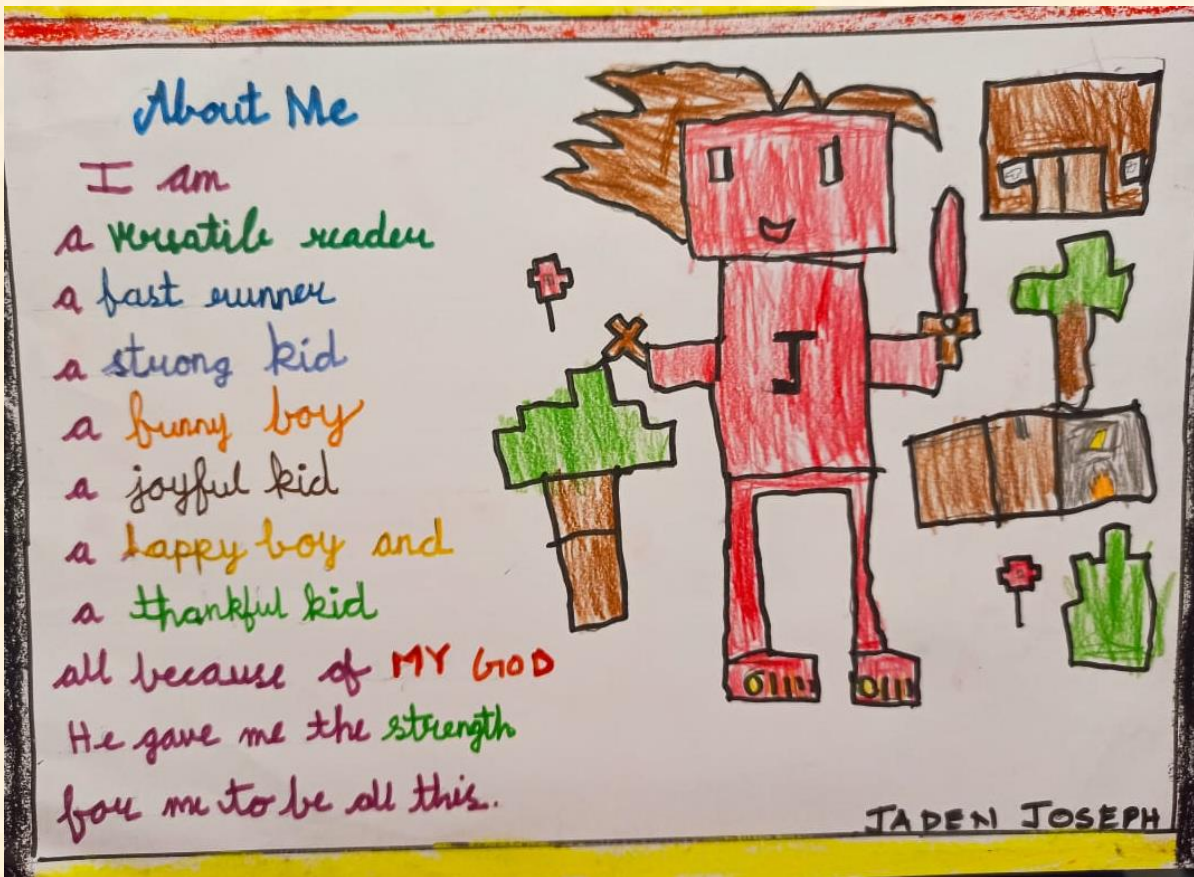 About Me
I am
a versatile reader
a fast runner
a strong kid
a funny boy
a joyful kid
a happy boy and
a thankful kid
all because of MY GOD
He gave me the strength
for me to be all this.
J
JADEN JOSEPH